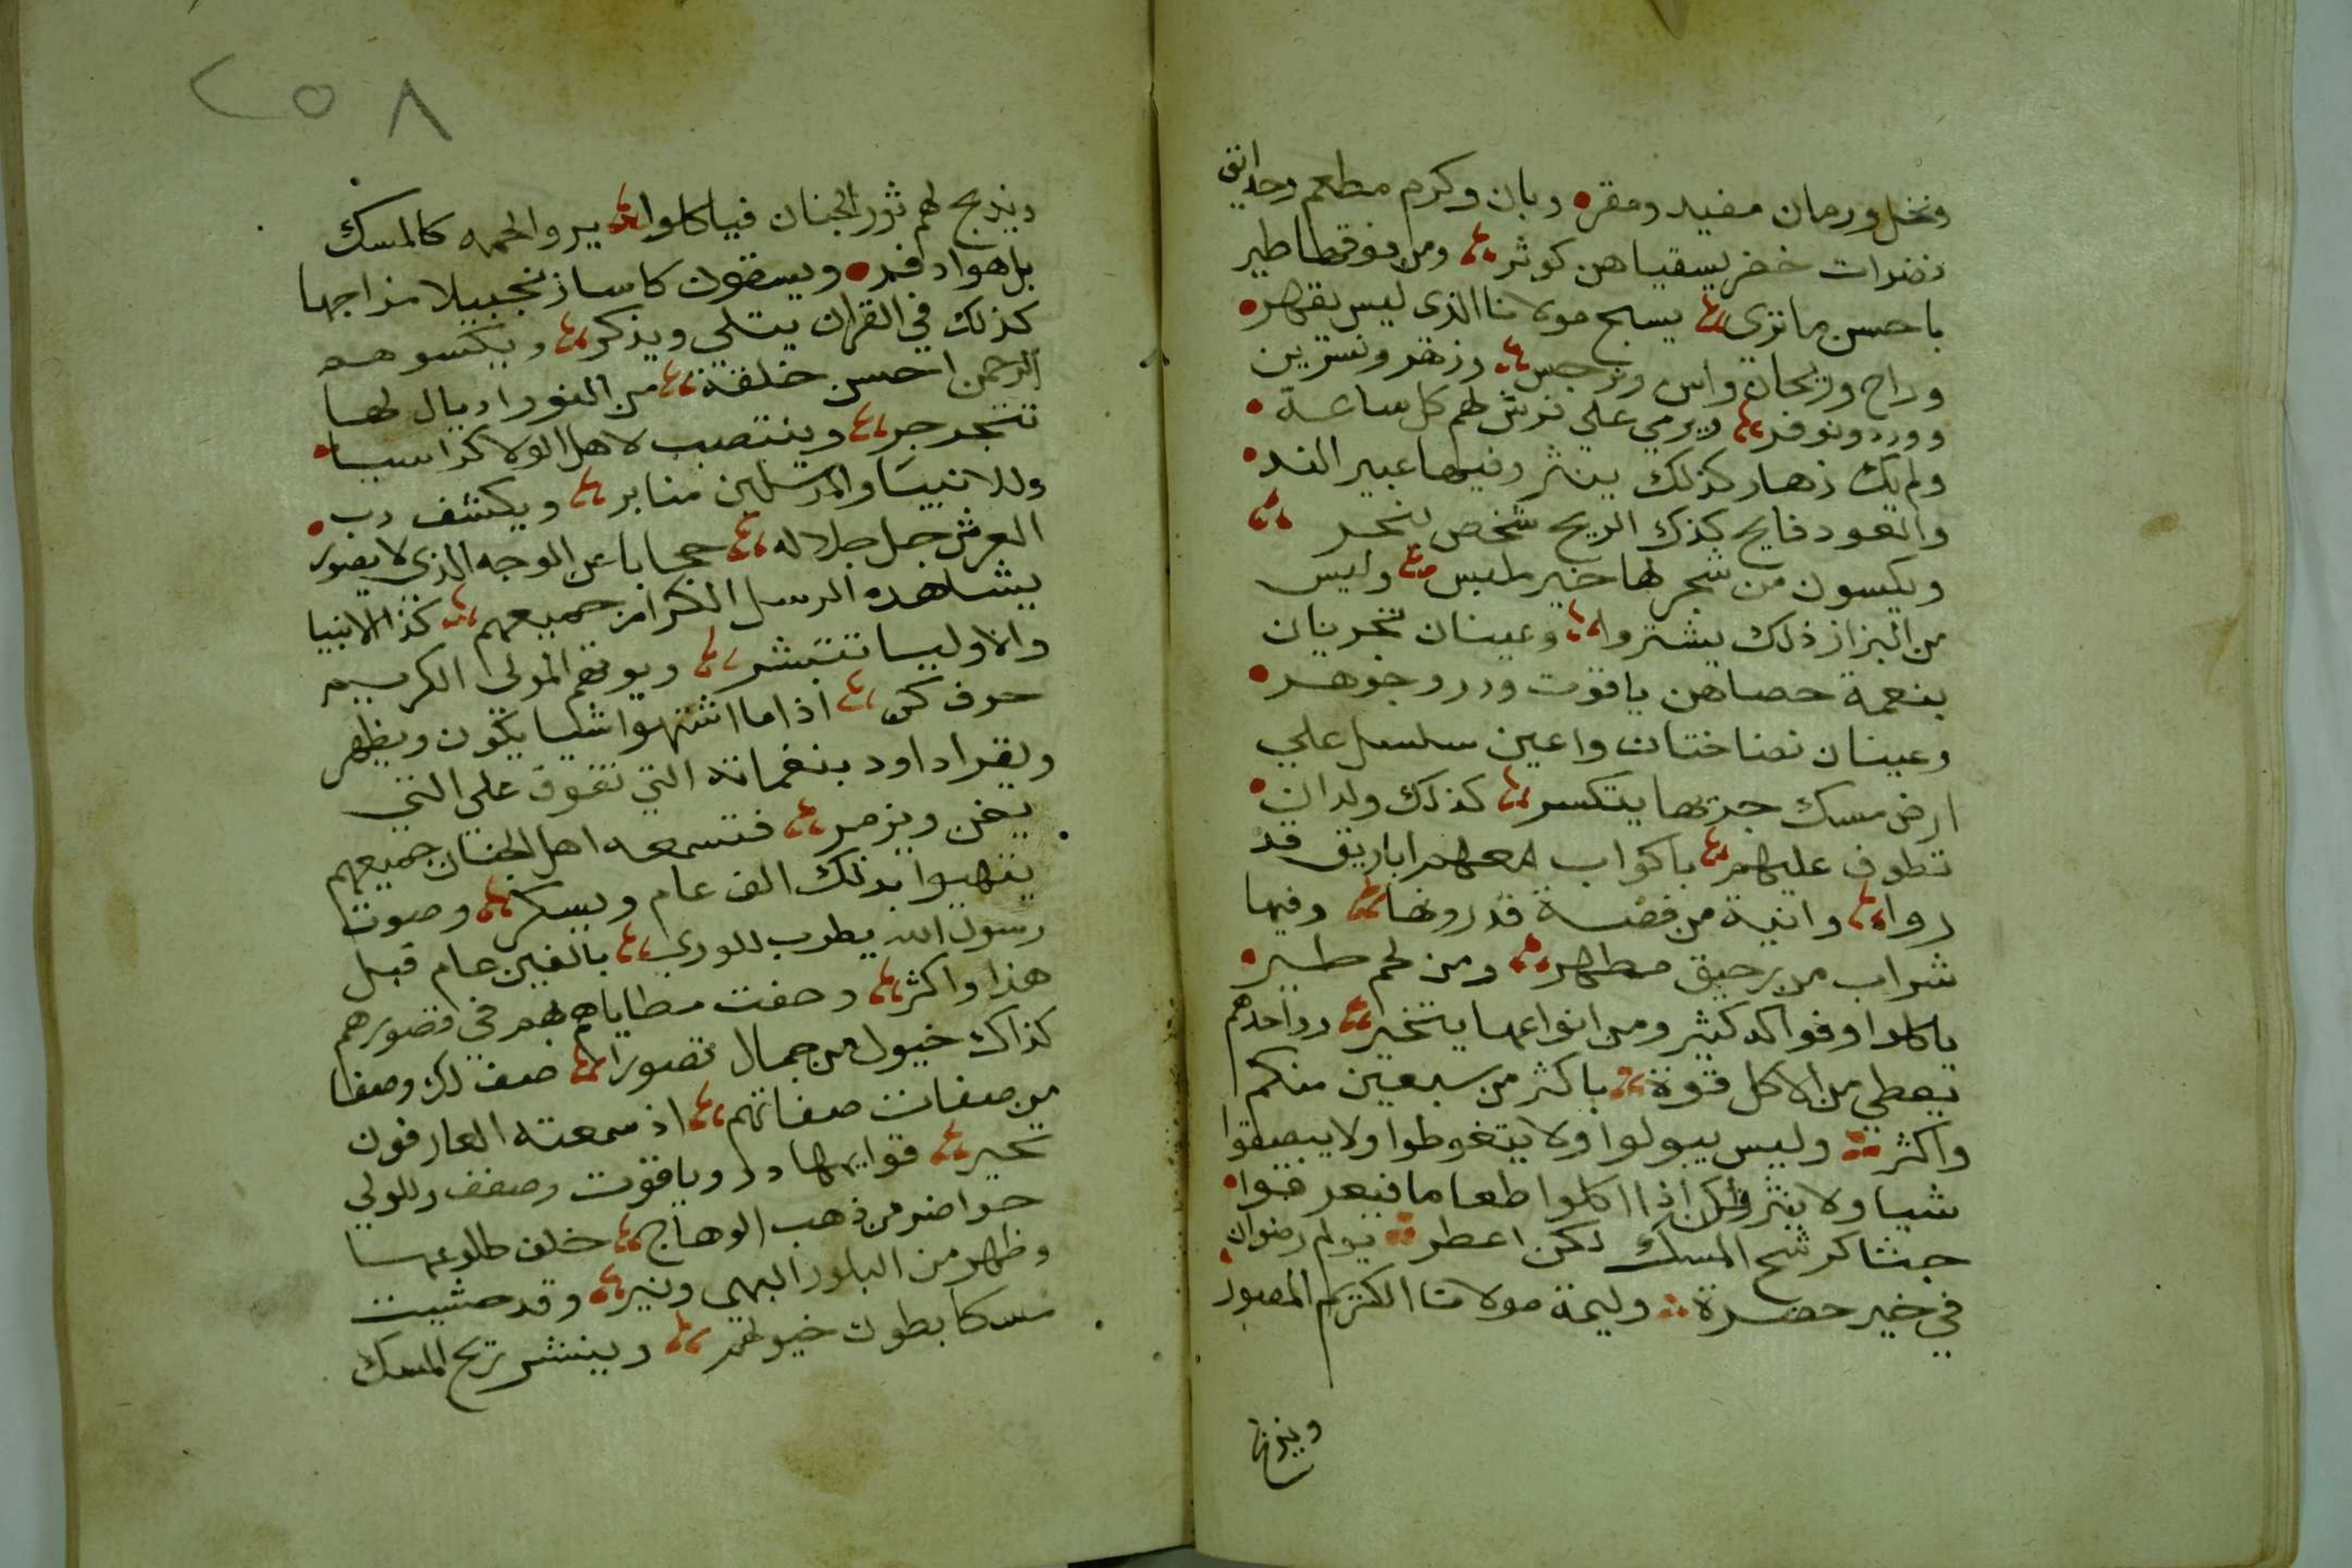 ونخل ورمان مفيد ومقره وبان وكرم مطعم وحدايق
نضرات خضر يسقياهن كوثر ومن فوقها طير
با حسن ما تري يسبح مولانا الذي ليس يقهر
وراح وريحان واس ونرجس وزهر ونسرين
وورد ونوفر ويرمي علي فرش لهم كل ساعة
ولم تك زهار كذلك ينثر وفيها عبير الند
والعود فايح كذك الريح شخص
ويكسون من شجر لها خير ملبس وليس
من البزاز ذلك يشتروا وعينان تجريان
بنعمة حصاهن ياقوت ودر وجوهر
وعينان نضاختان واعين سلسل علي
ارض مسك جريها يتكسر كذلك ولدان
تطوف عليهم باكواب معهم اباريق قد
روا وانية من فضة قدروها وفيها
شراب من رحيق مطهر ومن لحم طير
ياكلوا وفواكه كثير ومن انواعها يتخير وواحدهم
يعطي من الاكل قوة باكثر من سبعين منكم
واكثر وليس يبولوا ولا يتغوطوا ولا يبصقوا
شيا ولا ينثر ولكن اذا اكلوا طعاما فيعرقوا
جثا كرشح المسك لكن اعطر يولم رضوان
في خير حضرة وليمة مولانا الكريم المصور
ويذبح
٢٥٨
ويذبح لهم ثور الجنان فياكلوا يروا لحمه كالمسك
بل هو اذفر ويسقون كاسا زنجبيلا مزاجها
كذلك في القران يتلي ويذكر ويكسوهم
الرحمن احسن خلقة من النور اديال لها
تتجرجر وينتصب لاهل الولا كراسيا
وللانبيا والمرسلين منابر ويكشف رب
العرش جل جلاله حجابا عن الوجه الذي لا يصور
يشاهده الرسل الكرام جميعهم كذا الانبيا
والاوليا تتبشر ويوتهم المولي الكريم
حرف كن اذا ما اشتهوا شيا يكون ويظهر
ويقرا داود بنغماته التي تفوق على التي
يغن ويزمر فتسمعه اهل الجنان جميعهم
يتهيوا بذلك الف عام ويسكر وصوت
رسول الله يطرب للوري بالفين عام قبل
هذا واكثر وحفت مطاياهم بهم في قصورهم
كذاك خيول من جمال تصورا صف لك وصفا
من صفات صفاتهم اذ سمعته العارفون
تحير قوايمها در وياقوت وصفف وللولي
حوافر من ذهب الوهاج خلف طلوعها
وظهر من البلور البهي ونير وقد حشيت
مسكا بطون خيولهم وينشر ريح المسك